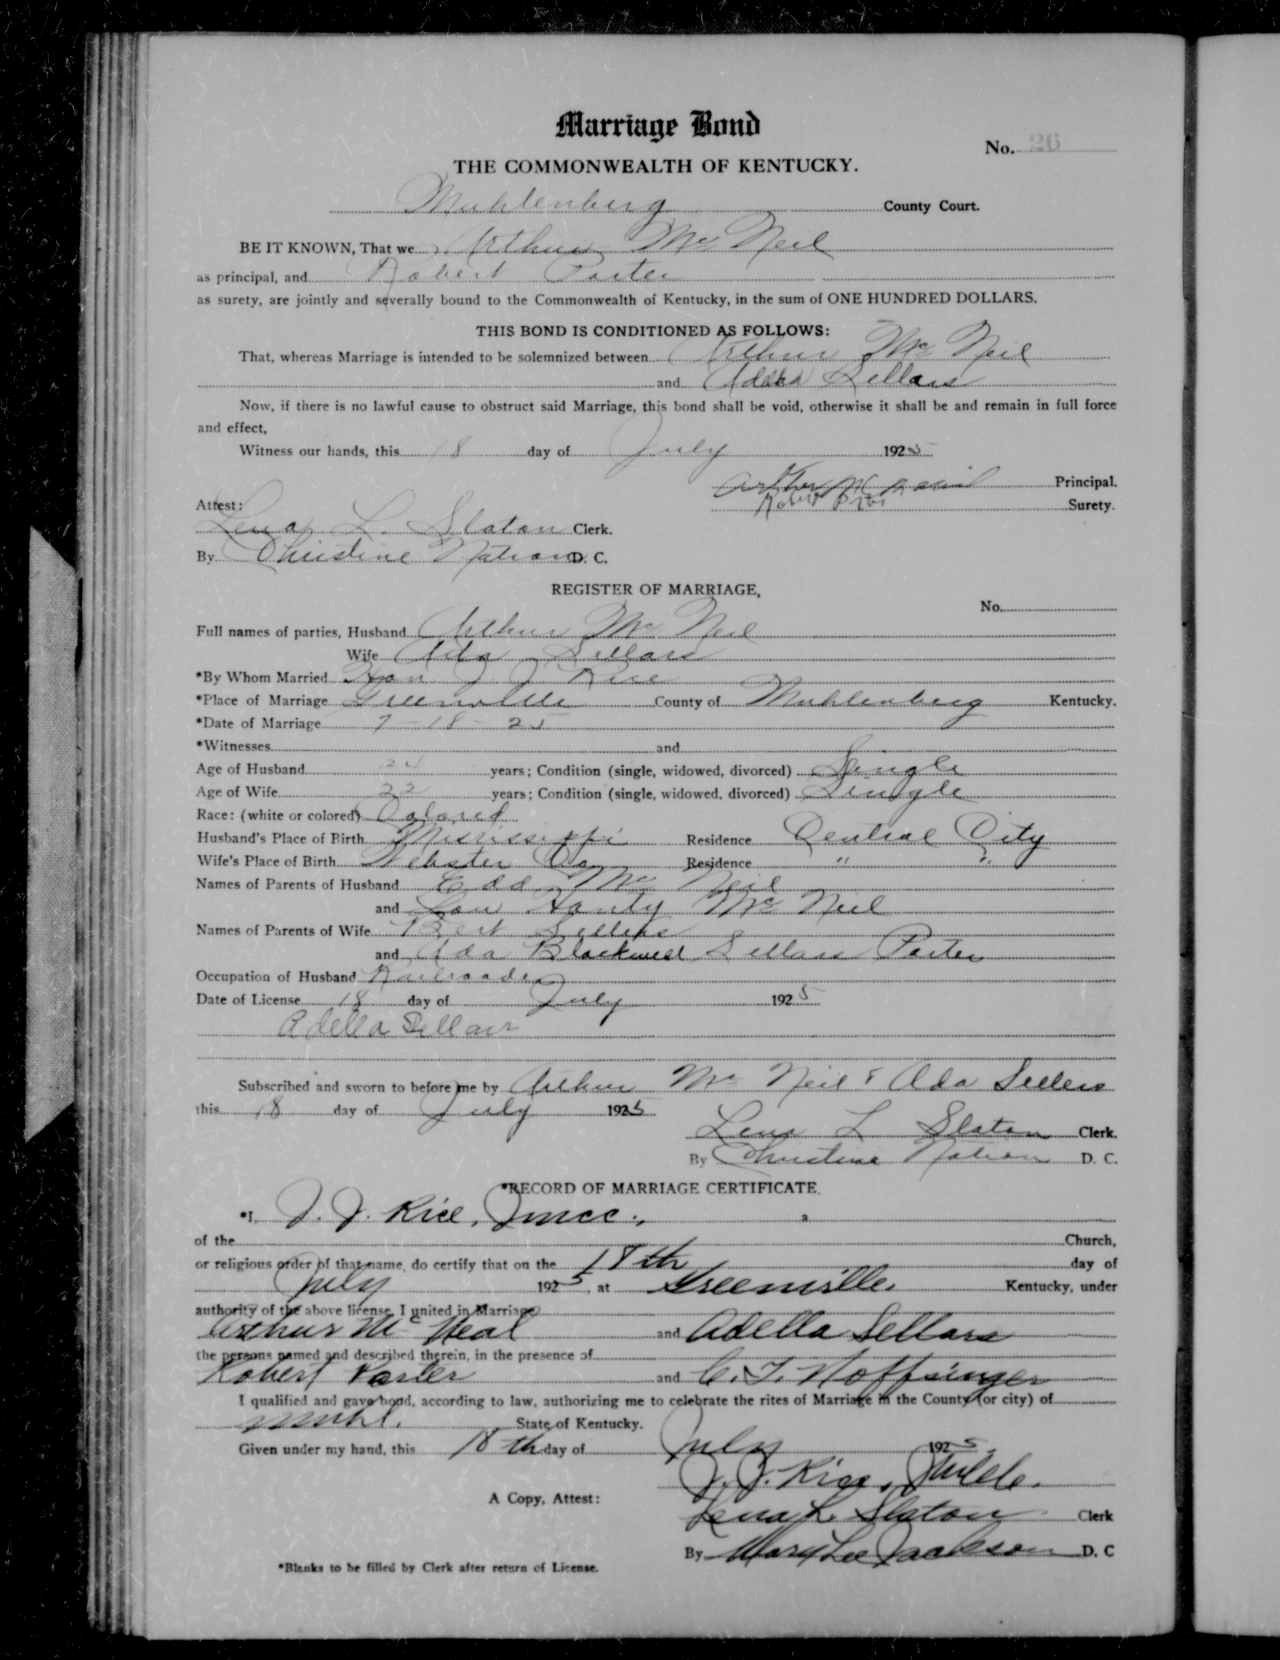 Marriage Bond
No. 26
THE COMMONWEALTH OF KENTUCKY.
Muhlenberg County Court.
BE IT KNOWN, That we Arthur Mc Neil
as principal, and Robert Porter
as surety, are jointly and severally bound to the Commonwealth of Kentucky, in the sum of ONE HUNDRED DOLLARS.
THIS BOND IS CONDITIONED AS FOLLOWS:
That, whereas Marriage is intended to be solemnized between Arthur Mc Neil
and Adella Sellars
Now, if there is no lawful cause to obstruct said Marriage, this bond shall be void, otherwise it shall be and remain in full force
and effect,
Witness our hands, this 18 day of July 1925
Principal.
Attest: Robert Surety.
Lena L. Slaton Clerk.
By Christine Nation D. C.
REGISTER OF MARRIAGE,
No.
Full names of parties, Husband Arthur Mc Neil
Wife Ada Sellars
*By Whom Married Hon. J. J. Rice
*Place of Marriage Greenville County of Muhlenberg Kentucky.
*Date of Marriage 7-18-25
*Witnesses and
Age of Husband 24 years; Condition (single, widowed, divorced) Single
Age of Wife 22 years; Condition (single, widowed, divorced) Single
Race: (white or colored) Colored
Husband's Place of Birth Mississippi Residence Central City
Wife's Place of Birth Webster Co Residence " "
Names of Parents of Husband Edd Mc Neil
and Lou Hanty Mc Neil
Names of Parents of Wife Bert Sellers
and Ada Blackwell Sellars Porter
Occupation of Husband Railroader
Date of License 18 day of July 1925
Adella Sellars
Subscribed and sworn to before me by Arthur Mc Neil & Ada Sellers
this 18 day of July 1925
Lena L Slaton Clerk.
By Christine Nation D. C.
*RECORD OF MARRIAGE CERTIFICATE.
*I, J. J. Rice, Jmcc., a
of the Church,
or religious order of that name, do certify that on the 18th day of
July 1925, at Greenville. Kentucky, under
authority of the above license, I united in Marriage
Arthur Mc Neal and Adella Sellars
the persons named and described therein, in the presence of
Robert Porter and C. T. Noffsinger
I qualified and gave bond, according to law, authorizing me to celebrate the rites of Marriage in the County (or city) of
Muhl. State of Kentucky.
Given under my hand, this 18th day of July 1925.
J. J. Rice,
A Copy, Attest: Lena L. Slaton Clerk
By Mary Lee Jackson D. C
*Blanks to be filled by Clerk after return of License.